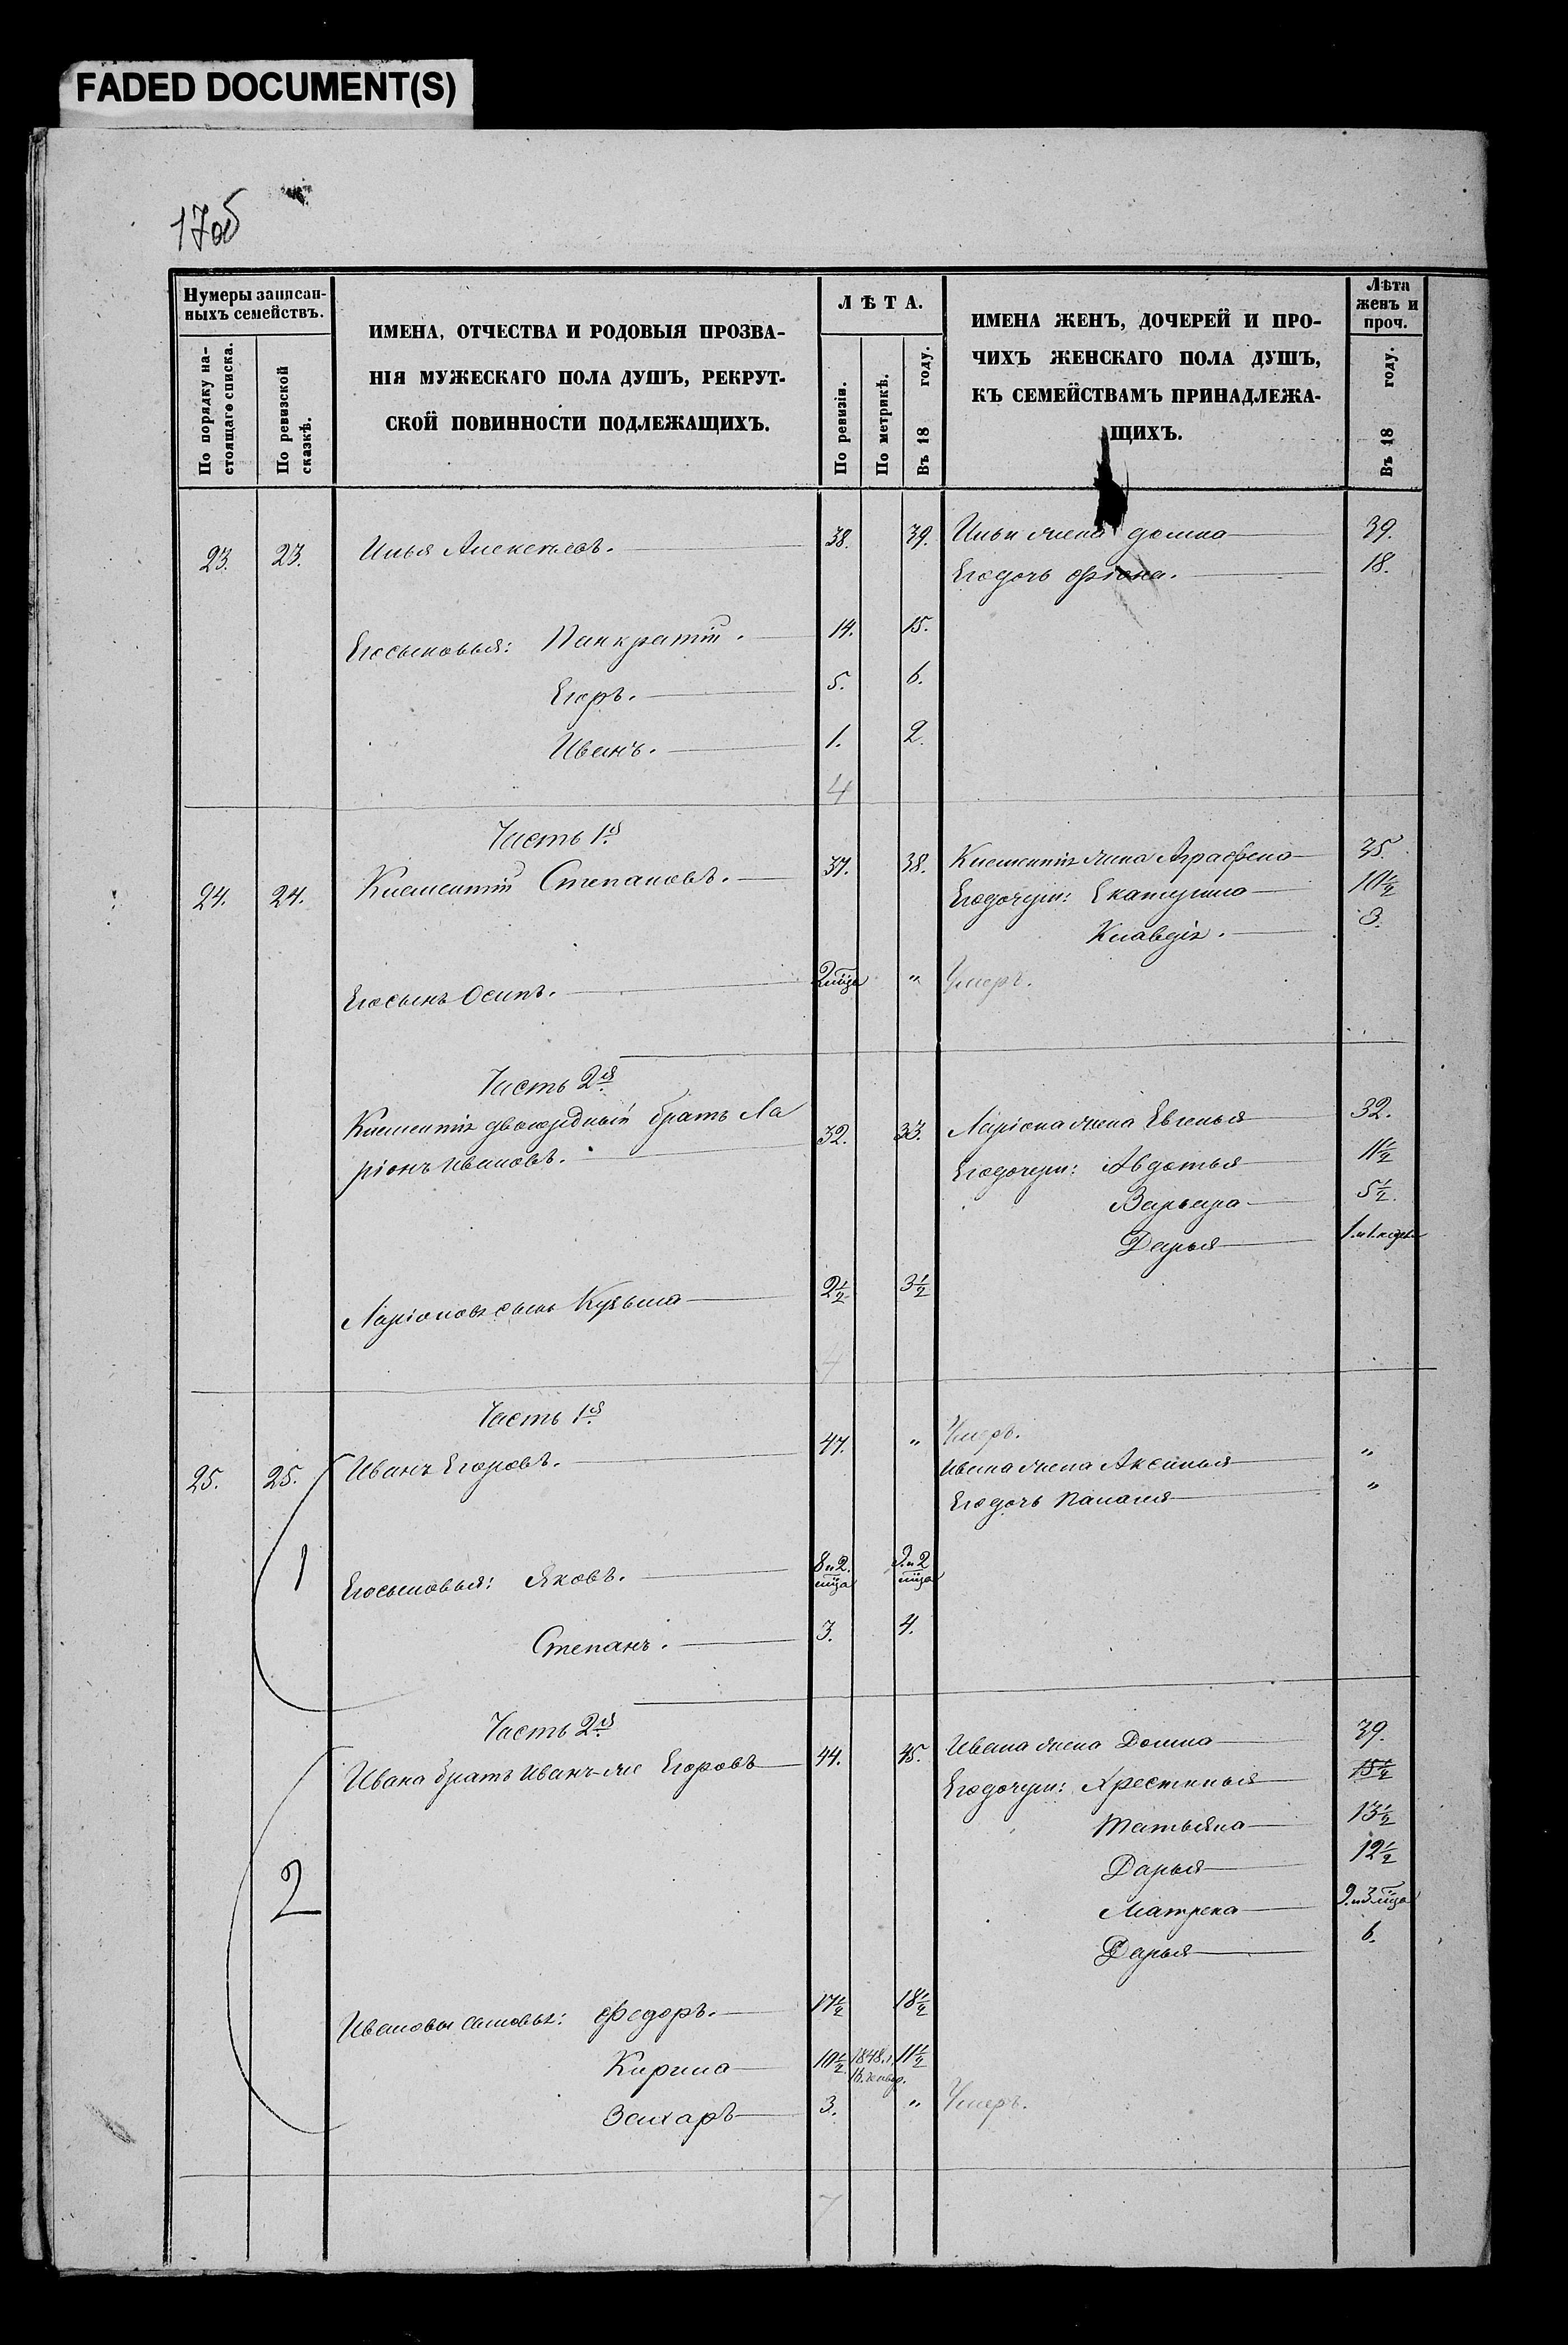 FADED DOCUMENT(S)
17об
Нумеры записан-
ныхъ семействъ.
По порядку на-
стоящаго списка.
По ревизской
сказкѣ.
ИМЕНА, ОТЧЕСТВА И РОДОВЫЯ ПРОЗВА-
НІЯ МУЖЕСКАГО ПОЛА ДУШЪ, РЕКРУТ-
СКОЙ ПОВИННОСТИ ПОДЛЕЖАЩИХЪ.
ЛѢТА.
По ревизіи.
По метрикѣ.
Въ 18 году.
ИМЕНА ЖЕНЪ, ДОЧЕРЕЙ И ПРО-
ЧИХЪ ЖЕНСКАГО ПОЛА ДУШЪ,
КЪ СЕМЕЙСТВАМЪ ПРИНАДЛЕЖА-
ЩИХЪ.
Лѣта
женъ и
проч.
Въ 18 году.
23. 23. Илья Алексѣевъ. 38. 39. Ильи жена Домна 39.
Его дочь 18.
Его сыновья: Панкратій. 14. 15.
Егоръ. 5. 6.
Иванъ. 1. 2.
4
Часть 1я
24. 24. Климентій Степановъ. 37. 38. Климентія жена Аграфена 35.
Его дочери: Екатерина 10½
Клавдія. 3.
Его сынъ Осипъ. 2 мѣца " Умеръ.
Часть 2я
Климентія двоюродный братъ Ла
ріонъ Ивановъ. 32. 33. Ларіона жена Евгенья 32.
Его дочери: Авдотья 11½
Варвара 5½.
Дарья
Ларіоновъ сынъ Кузьма 2½ 3½
4
Часть 1я
25. 25. Иванъ Егоровъ. 47. " Умеръ.
Ивана жена Аксинья "
Его дочь Палагея "
1
Его сыновья: Яковъ. 8 и 2. мѣца 9. и 2 мѣца
Степанъ. 3. 4.
Часть 2я
Ивана братъ Иванъ-же Егоровъ 44. 45. Ивана жена Домна 39.
Его дочери: Хрестинья 15½
Татьяна 13½
Дарья 12½
2
Матрена 9. и 3 мѣца
Дарья 6.
Ивановы сыновья: Федоръ. 17½ 18½
Кирила 10½ 1848. 11½
Захаръ 3. " Умеръ.
7